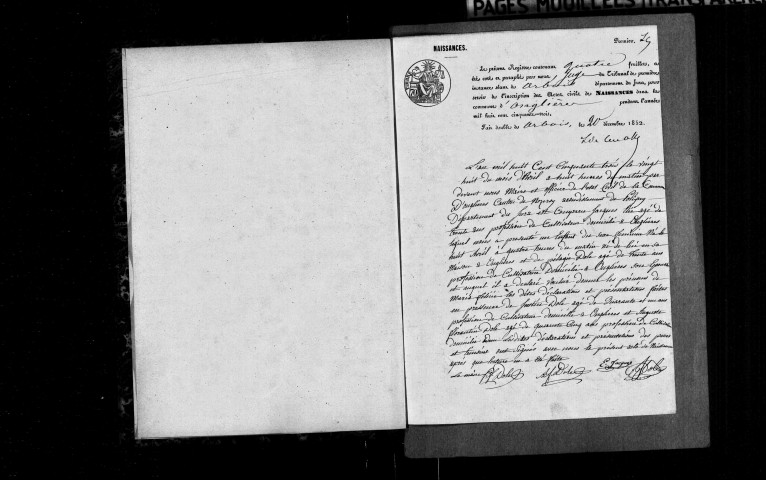 PAGES MOUILLEES (TRANSPARENCE
NAISSANCES.
Premier,
Le présent Registre contenant quatre feuillets, a
été coté et paraphé par nous Juge du Tribunal de première
instance séant à Arbois département du Jura, pour
servir à l'inscription des Actes civils de NAISSANCES dans la
commune d'Onglières pendant l'année
mil huit cent cinquante-trois.
Fait double à Arbois, le 20 décembre 1852.
L'an mil huit Cent Cinquante trois le vingt
huit du mois d'Avril à huit heures du matin par
devant nous Maire et officier de l'etat Civil de la Commune
D'onglières Canton de Nozeroy arrondissement de Poligny
Département du Jura est Comparu Jacques agé de
trente ans profession de Cultivateur domicilié à Onglières
lequel nous a présenté un Enfant du sexe féminin né le
huit Avril à quatre heures du matin né de lui en sa
Maison à Onglières et de Dole agé de trente ans
profession de Cultivatrice Domiciliée à Onglières
et auquel il a déclaré vouloir donner les prénoms de
Marie les dites déclarations et présentations faites
en présence de Dole agé de quarante et un ans
profession de Cultivateur domicilié à Onglières et Auguste
Dole agé de quarante Cinq ans profession de Cultivateur
domicilié les dites déclarations et présentations les père
et témoins ont signés avec nous le présent acte de Naissance
après que lecture en a été faite
Le maire Dole Dole Jacques Dole